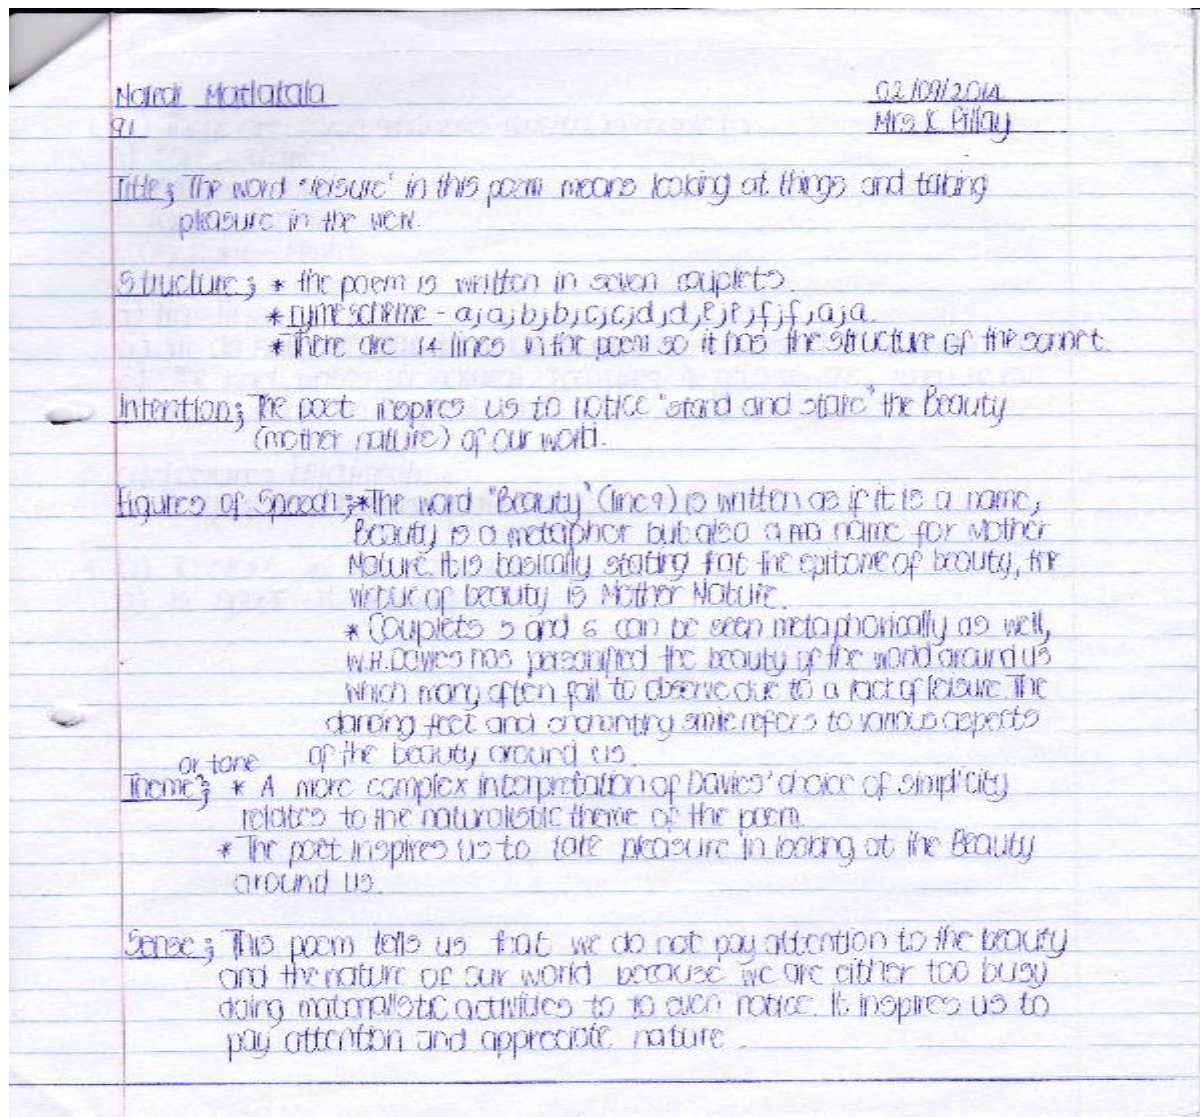 Matlakala
02/09/2014
91
Mrs K Pillay
Title; The word "leisure" in this poem means looking at things and taking
pleasure in the view.
Structure; * the poem is written in seven couplets.
* ryme scheme - a;a;b;b;c;c;d;d;e;e;f;f;a;a.
* There are 14 lines in the poem so it has the structure of the sonnet.
Intention; The poet inspires us to notice "stand and stare" the Beauty
(mother nature) of our world.
Figures of Speech; * The word "Beauty" (line 9) is written as if it is a name,
Beauty is a metaphor but also a name for Mother
Nature. It is basically stating that the epitome of beauty, the
virtue of beauty is Mother Nature.
* Couplets 5 and 6 can be seen metaphorically as well,
W.H.Davies has personified the beauty of the world around us
which many often fail to observe due to a lack of leisure. The
dancing feet and enchanting smile refers to various aspects
of the beauty around us.
or tone
Theme; * A more complex interpretation of Davies' choice of simplicity
relates to the naturalistic theme of the poem.
* The poet inspires us to take pleasure in looking at the Beauty
around us.
Sense; This poem tells us that we do not pay attention to the beauty
and the nature of our world because we are either too busy
doing materialistic activities to to even notice. It inspires us to
pay attention and appreciate nature.